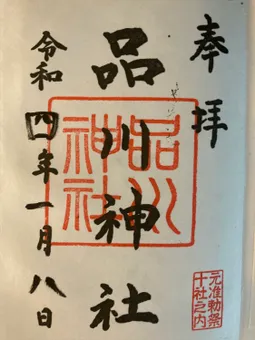 奉拝
品川神社
品川神社
令和四年一月八日
元准勅祭
十社之内